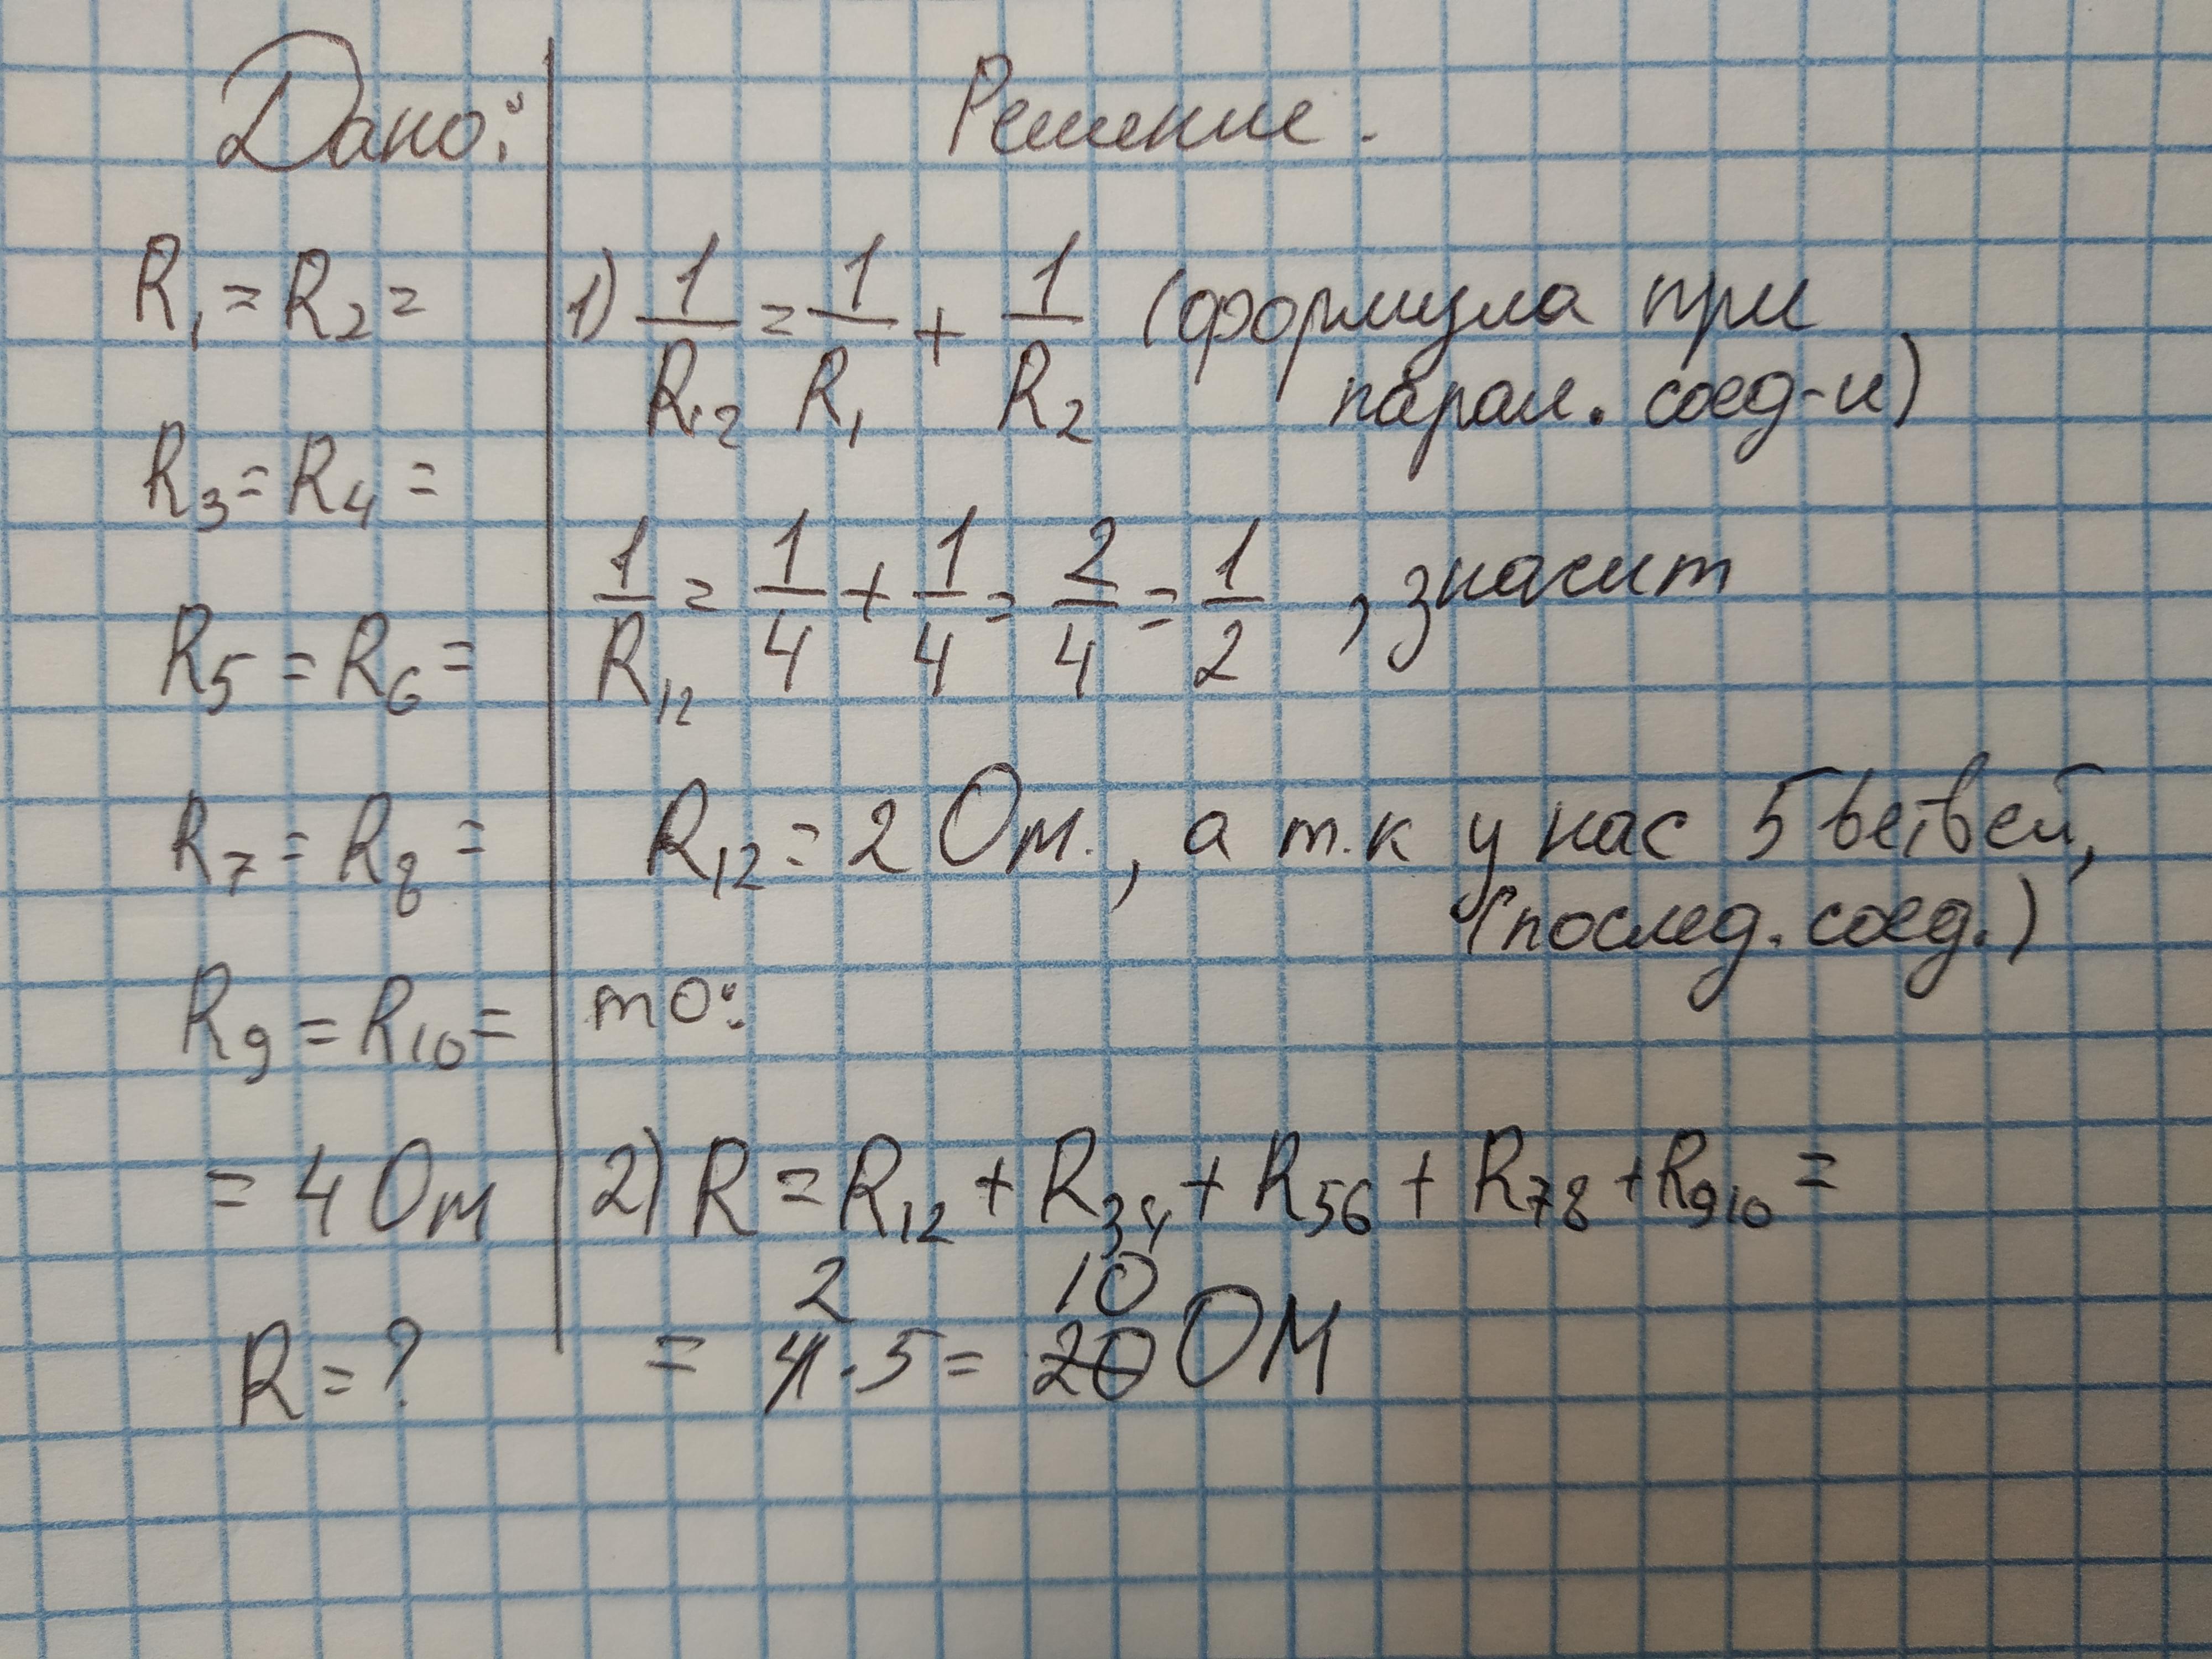 Дано:
R₁ = R₂ =
R₃ = R₄ =
R₅ = R₆ =
R₇ = R₈ =
R₉ = R₁₀ =
= 4 Ом
R = ?
Решение.
1) 1/R₁₂ = 1/R₁ + 1/R₂ (формула при
парал. соед-и)
1/R₁₂ = 1/4 + 1/4 = 2/4 = 1/2 , значит
R₁₂ = 2 Ом., а т.к у нас 5 ветвей,
(послед. соед.)
то:
2) R = R₁₂ + R₃₄ + R₅₆ + R₇₈ + R₉₁₀ =
2 10
= 4 · 5 = 20 ОМ